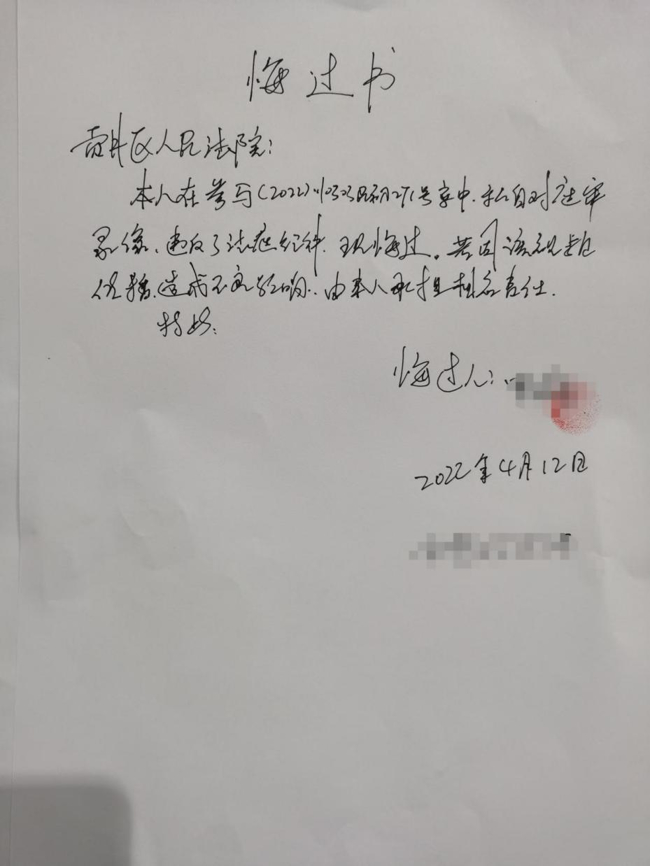 悔过书
贡井区人民法院:
本人在案号(2022)川0303民初271号案中,私自对庭审
录像,违反了法庭纪律,现悔过。若因该视频
传播,造成不良影响,由本人承担相应责任.
特此:
悔过人:
2022年4月12日